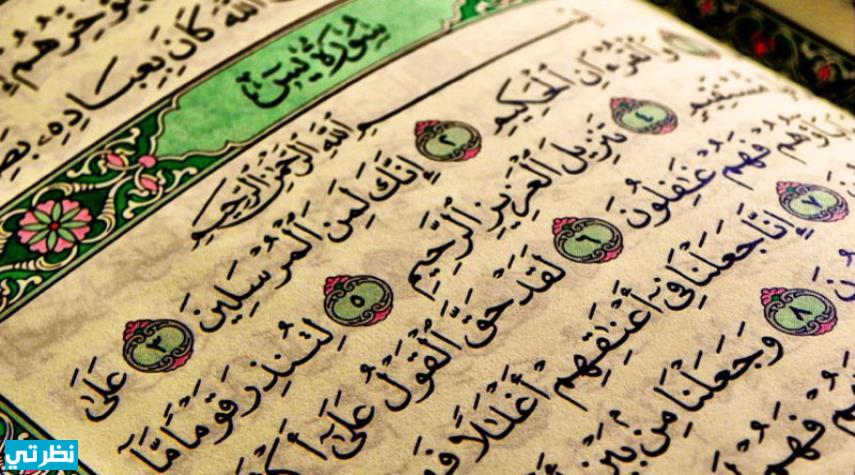 ٱللَّهَ كَانَ بِعِبَادِهِۦ بَصِ
سُورَةُ يسٓ
بِسْمِ ٱللَّهِ ٱلرَّحْمَٰنِ ٱلرَّحِيمِ
١ وَٱلْقُرْءَانِ ٱلْحَكِيمِ ٢ إِنَّكَ لَمِنَ ٱلْمُرْسَلِينَ ٣ عَلَىٰ
مُّسْتَقِيمٍ ٤ تَنزِيلَ ٱلْعَزِيزِ ٱلرَّحِيمِ ٥ لِتُنذِرَ قَوْمًا مَّآ
بَآؤُهُمْ فَهُمْ غَٰفِلُونَ ٦ لَقَدْ حَقَّ ٱلْقَوْلُ عَلَىٰٓ أَكْ
ونَ ٧ إِنَّا جَعَلْنَا فِىٓ أَعْنَٰقِهِمْ أَغْلَٰلًا فَهِ
ونَ ٨ وَجَعَلْنَا مِنۢ بَيْنِ
هُمْ فَهُمْ
نظرتي